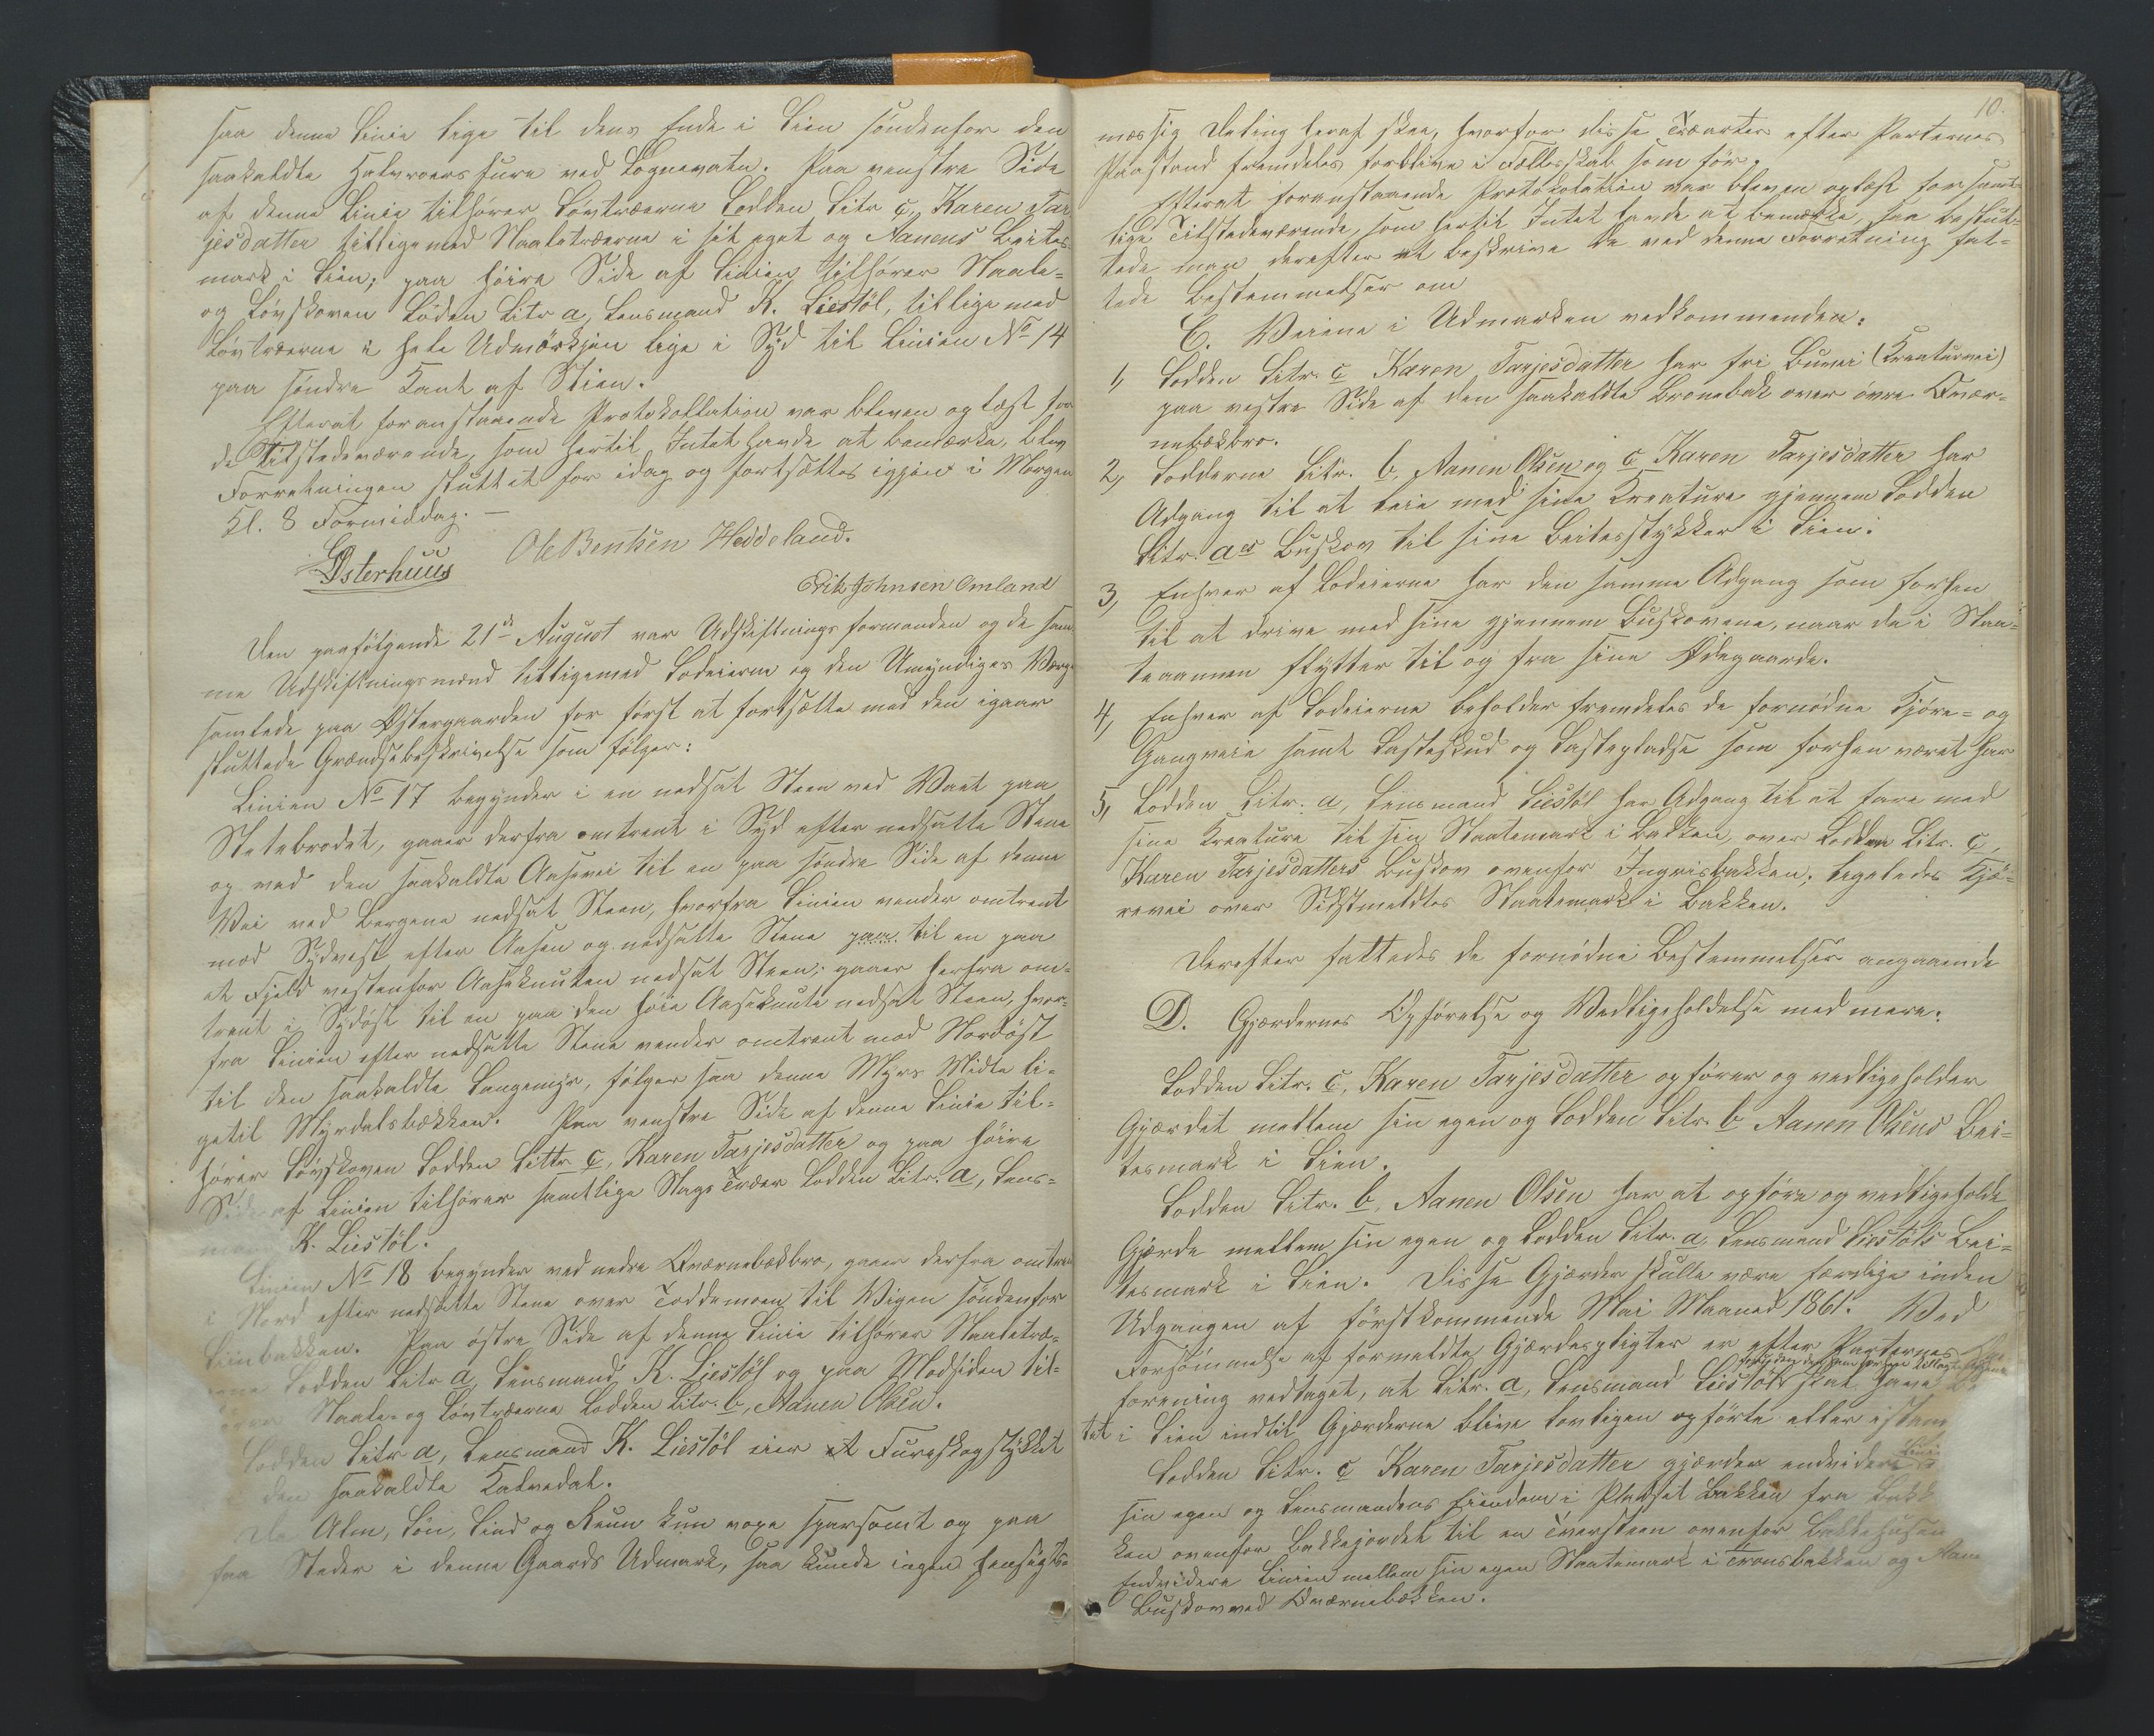 saa denne Linie lige til dens Ende i Lien søndenfor den
saakaldte Halvroersfura ved Lognevatn. Paa venstre Side
af denne Linie tilhører Løvtræerne Lodden Litr c, Karen Tar
jesdatter tilligemed Naaletræerne i sit eget og Aanens Beites
mark i Lien; paa høire Side af Linien tilhører Naale=
og Løvskoven Lodden Litr a, Lensmand K. Liestöl, tilligemed
Løvtræerne i hele Udmörkjen lige i Syd til Linien No 14
paa søndre Kant af Stien.
Efterat foranstaaende Protokollation var bleven oplæst for
de Tilstedeværende, som hertil Intet havde at bemærke, blev
Forretningen sluttet for idag og fortsættes igjen i Morgen
Kl. 8 Formiddag. —
Østerhuus Ole Bentsen Heddeland.
Erik Johnsen Omland
Den paafølgende 21de August var Udskiftningsformanden og de sam
me Udskiftningsmænd tilligemed Lodeierne og den Umyndiges Værge
samlede paa Østergaarden for først at fortsætte med den igaar
sluttede Grændsebeskrivelse som følger:
Linien No 17 begynder i en nedsat Steen ved Vant paa
Stelebrodet, gaaer derfra omtrent i Syd efter nedsatte Stene
og ved den saakaldte Aasevei til en paa søndre Side af denne
Vei ved Bergene nedsat Steen, hvorfra Linien vender omtrent
mod Sydvest efter Aasen og nedsatte Stene paa til en paa
et Fjeld vestenfor Aaseknuten nedsat Steen; gaaer herfra om=
trent i Sydøst til en paa den høie Aaseknute nedsat Steen, hvor=
fra Linien efter nedsatte Stene vender omtrent mod Nordøst
til den saakaldte Langemyr, følger saa denne Myrs Midte li=
getil Myrdalsbækken. Paa venstre Side af denne Linie til=
hører Løvskoven Lodden Littr c, Karen Tarjesdatter og paa høire
Side af Linien tilhører samtlige Slags Træer Lodden Litr. a, Lens=
mand K. Liestöl.
Linien No 18 begynder ved nedre Qværnebækbro, gaaer derfra omtrent
i Nord efter nedsatte Stene over Toddemoen til Vigen søndenfor
Liinbakken. Paa østre Side af denne Linie tilhører Naaletræ=
erne Lodden Litr a Lensmand K. Liestöl og paa Modsiden til=
hører Naale= og Løvtræerne Lodden Litr. b, Aanen Olsen.
Lodden Litr a, Lensmand K. Liestöl eier et Fureskogstykket
i den saakaldte Katvedal.
Da Alm, Lön, Lind og Reun kun voxe sparsomt og paa
faa Steder i denne Gaards Udmark, saa kunde ingen hensigts=
10.
mæssig Deling heraf skee, hvorfor disse Træarter efter Parternes
Paastand fremdeles forblive i Fællesskab som før.
Efterat foranstaaende Protokollation var bleven oplæst for samt=
lige Tilstedeværende, som hertil Intet havde at bemærke, saa beslut=
tede man derefter at beskrive de ved denne Forretning fat=
tede Bestemmelser om
C. Veiene i Udmarken vedkommende:
1, Lodden Litr. c Karen Tarjesdatter har fri Buvei (Kreaturvei)
paa vestre Side af den saakaldte Bronebak over øvre Qvær=
nebækbro.
2, Lodderne Litr. b, Aanen Olsen og c Karen Tarjesdatter har
Adgang til at leie med sine Kreature gjennem Lodden
Litr. aes Buskov til sine Beitesstykker i Lien.
3, Enhver af Lodeierne har den samme Adgang som forhen
til at drive med sine gjennem Buskovene, naar de i Staa=
teaannen flytter til og fra sine Ødegaarde.
4, Enhver af Lodeierne beholder fremdeles de fornødne Kjøre= og
Gangveie samt Lasteskud og Lastepladse som forhen været har
5, Lodden Litr. a, Lensmand Liestöl har Adgang til at fare med
sine Kreature til sin Slaatemark i Bakken, over Lodden Litr. c,
Karen Tarjesdatters Buskov ovenfor Ingrisbakken; ligeledes Kjø=
revei over Sidstmeldtes Slaatemark i Bakken.
Derefter fattedes de fornødne Bestemmelser angaaende
D. Gjærdernes Opførelse og Vedligeholdelse med mere.
Lodden Litr. c, Karen Tarjesdatter opfører og vedligeholder
Gjærdet mellem sin egen og Lodden Litr. b Aanen Olsens Bei=
tesmark i Lien.
Lodden Litr. b, Aanen Olsen har at opføre og vedligeholde
Gjærde mellem sin egen og Lodden Litr. a, Lensmand Liestöls Bei=
tesmark i Lien. Disse Gjærder skulle være færdige inden
Udgangen af førstkommende Mai Maaned 1861. Ved
Forsømmelse af formeldte Gjærdespligter er efter Parternes
forening vedtaget, at Litr. a, Lensmand Liestöl skal have
tet i Lien indtil Gjærderne blive lovligen opførte eller istan
Lodden Litr. c Karen Tarjesdatter gjærder endvidere
sin egen og Lensmandens Eiendom i Pladset Bakken fra
ken ovenfor Bakkejordet til en Tversteen ovenfor Bakkehusen
Endvidere Linien mellem sin egen Slaatemark i Tronsbakken og Aane
Buskov ved Qværnebækken.